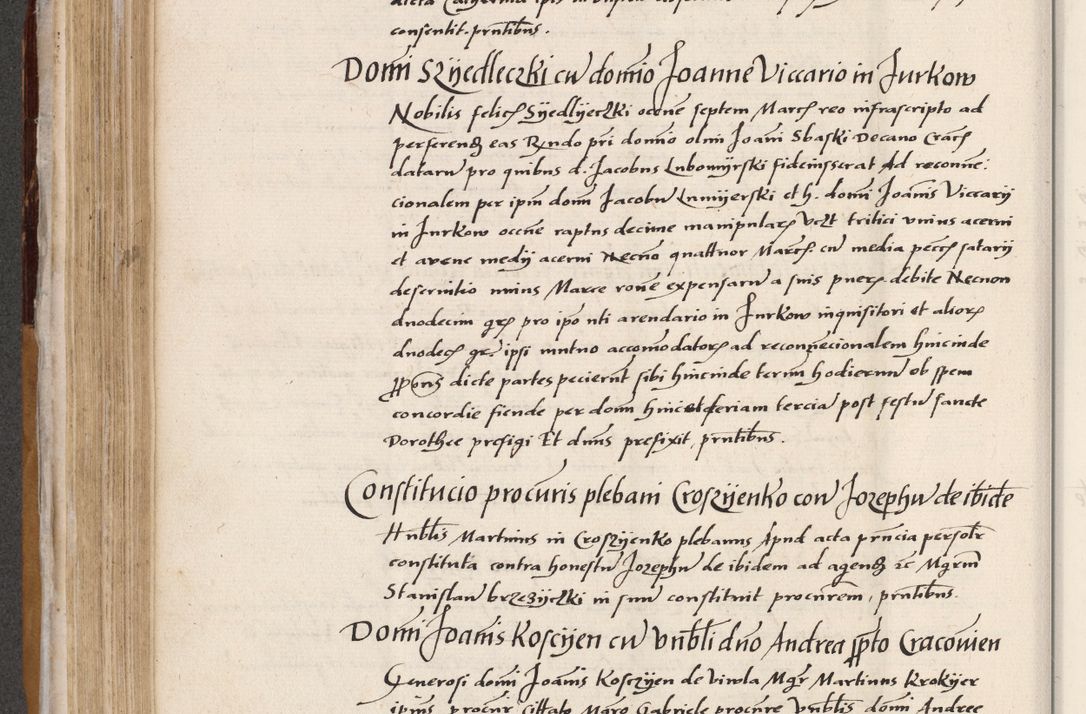 consentit. prntibus.
Domi Szyedleczki cu domio Joanne Viccario in Jurkow
Nobilis felicis Syedlyeczki occne septem Marcs reo infrascripto ad
perferend eas Rndo pri domio olim Joani Sbaski Decano Cracs
dataru pro quibus d. Jacobus Lubomyrski fideiusserat Ad reconne:
cionalem per ipm dom Jacobu Lumyerski et h. domi Joanis Viccarij
in Jurkow occne raptus decime manipularx vczt tritici vnius acerui
et avene medij acerui Necno quattuor Marcs. cu media peccs satarij
deseruitio unius Marce rone expensaru a suis puerx debite Necnon
duodecim grx pro ipo uti arendario in Jurkow inquisitori et aliorx
duodecs gr ipsi mutuo accomodatorx ad reconnecionalem hincinde
dicte partes pecierunt sibi hincinde termu hodiernu ob spem
concordie fiende per dom feriam tercia post festu sancte
Dorothee prefigi Et dnus prefixit, prntibus.
Constitucio procuris plebani Croszyenko con Jozephu de ibide
Hnblis Martinus in Croszyenko plebanus Apud acta prncia personlr
constituta contra honestu Jozephu de ibidem ad agend zc Mgrm
Stanislau brzezyczki in suu constituit procurem, prntibus.
Domi Joanis Koscyen cu Vnbli dno Andrea ppto Cracouien
Generosi domi Joanis Kosczyen de Viwla Mgr Martinus Krokyer
ipius procur Cittato Maro Gabriele procure Vnblis domi Andree